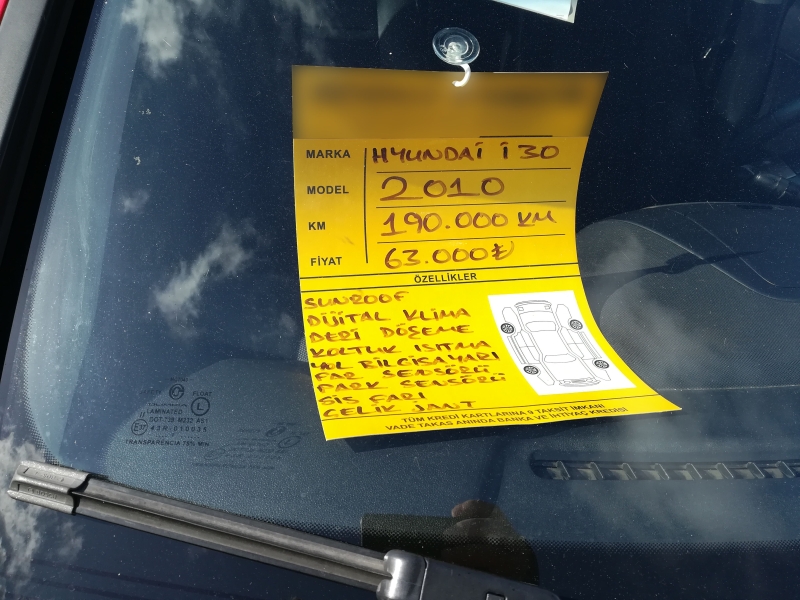 MARKA HYUNDAİ İ 30
MODEL 2010
KM 190.000 KM
FİYAT 63.000₺
ÖZELLİKLER
SUNROOF
DİJİTAL KLİMA
DERİ DÖŞEME
KOLTUK ISITMA
YOL BİLGİSAYARI
FAR SENSÖRÜ
PARK SENSÖRÜ
SİS FARI
ÇELİK JANT
TÜM KREDİ KARTLARINA 9 TAKSİT İMKANI
VADE TAKAS ANINDA BANKA VE İHTİYAÇ KREDİSİ
FLOAT
LAMINATED
43R-010035
TRANSPARENCIA 75% MIN